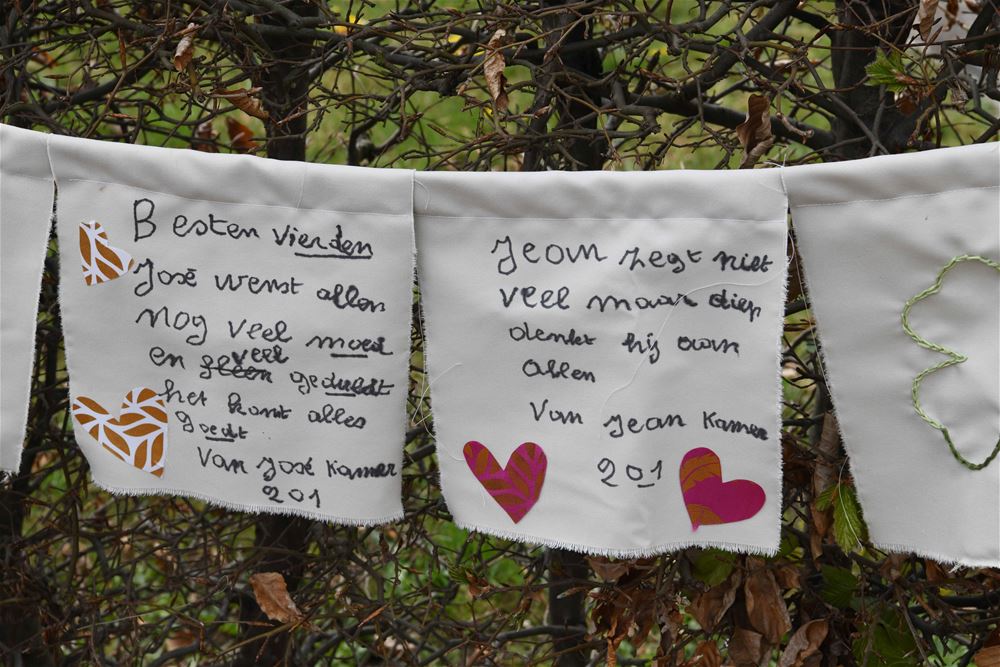 Besten vierden
José wenst allen
nog veel moed
en veel geduldt
het komt alles
goedt
Van José Kamer
201
Jean zegt niet
veel maar diep
denkt hij aan
allen
Van Jean Kamer
201